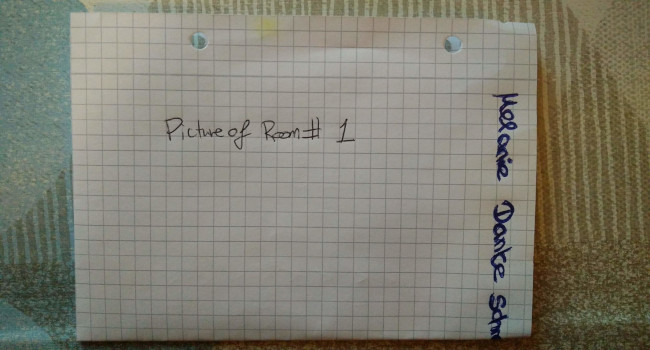 Picture of Room # 1
Melanie Danke Schn